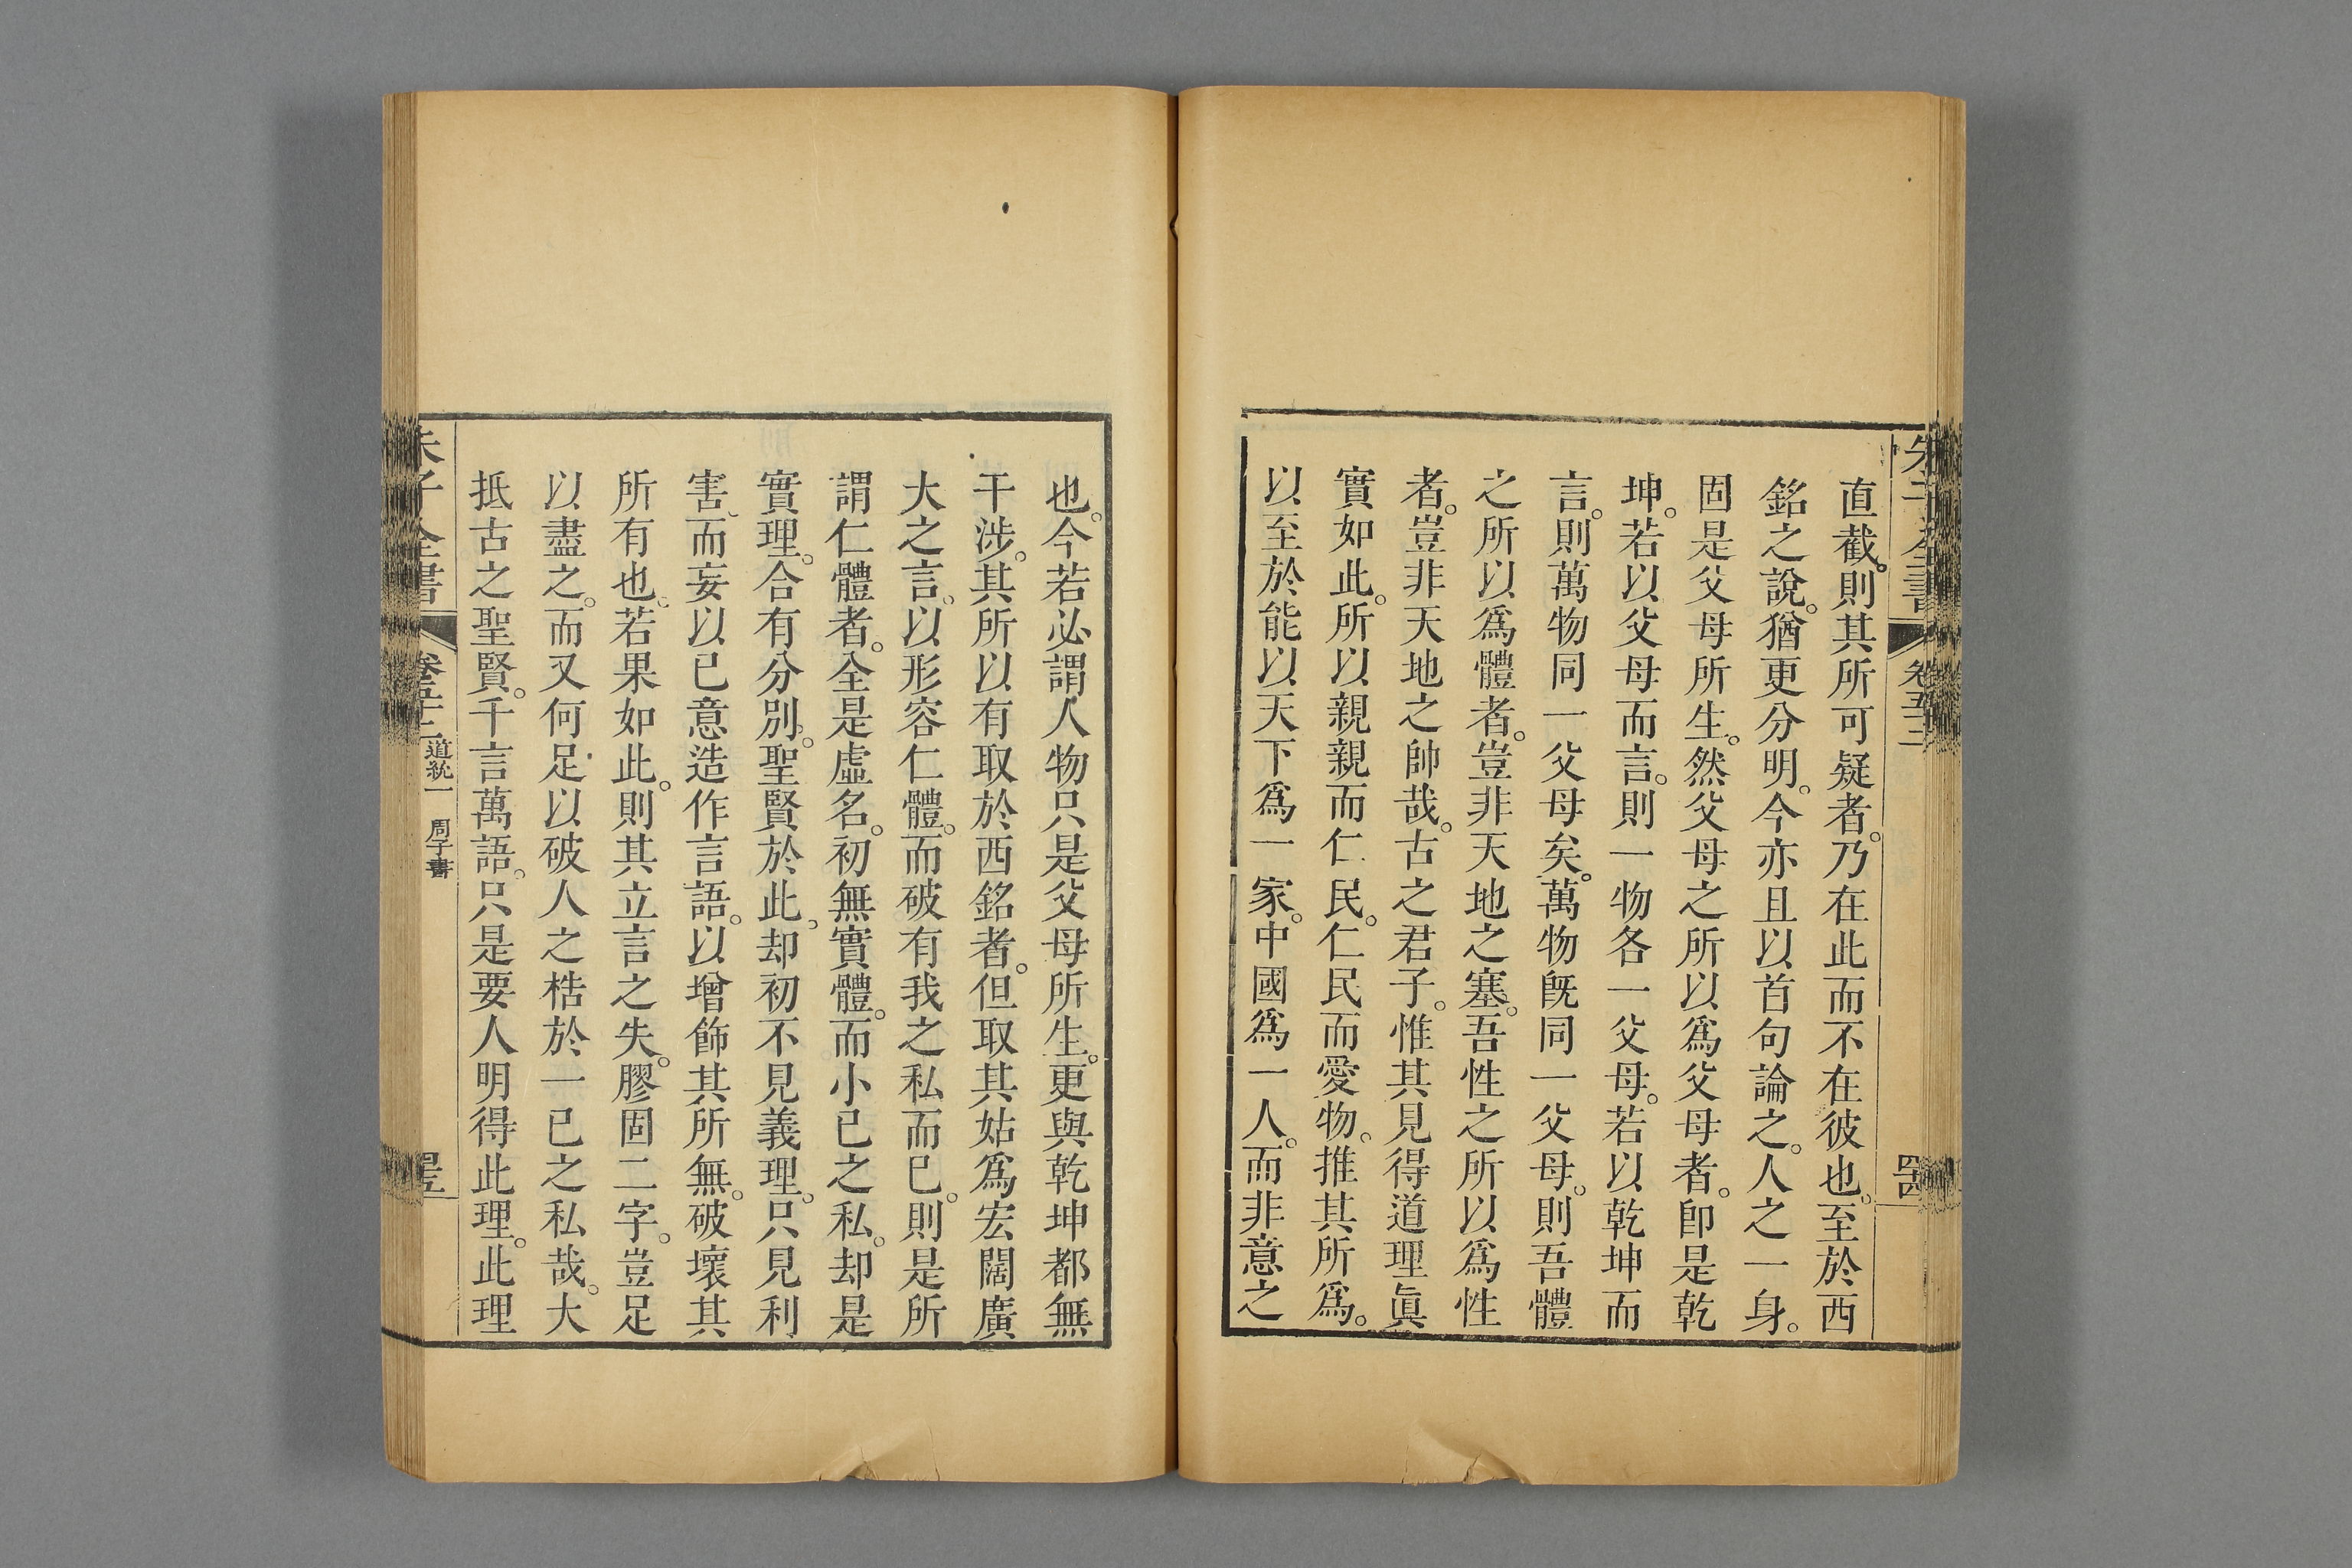 朱子全書 卷五十二 四十四
直截。則其所可疑者。乃在此而不在彼也。至於西
銘之說。猶更分明。今亦且以首句論之。人之一身。
固是父母所生。然父母之所以爲父母者。卽是乾
坤。若以父母而言。則一物各一父母。若以乾坤而
言。則萬物同一父母矣。萬物旣同一父母。則吾體
之所以爲體者。豈非天地之塞。吾性之所以爲性
者。豈非天地之帥哉。古之君子。惟其見得道理眞
實如此。所以親親而仁民。仁民而愛物。推其所爲。
以至於能以天下爲一家。中國爲一人。而非意之
也。今若必謂人物只是父母所生。更與乾坤都無
干涉。其所以有取於西銘者。但取其姑爲宏闊廣
大之言。以形容仁體。而破有我之私而已。則是所
謂仁體者。全是虛名。初無實體。而小已之私。却是
實理。合有分別。聖賢於此、却初不見義理。只見利
害、而妄以已意造作言語。以增飾其所無。破壞其
所有也。若果如此。則其立言之失。膠固二字。豈足
以盡之。而又何足以破人之梏於一已之私哉。大
抵古之聖賢。千言萬語。只是要人明得此理。此理
朱子全書 卷五十二 道統一 周子書 四十五